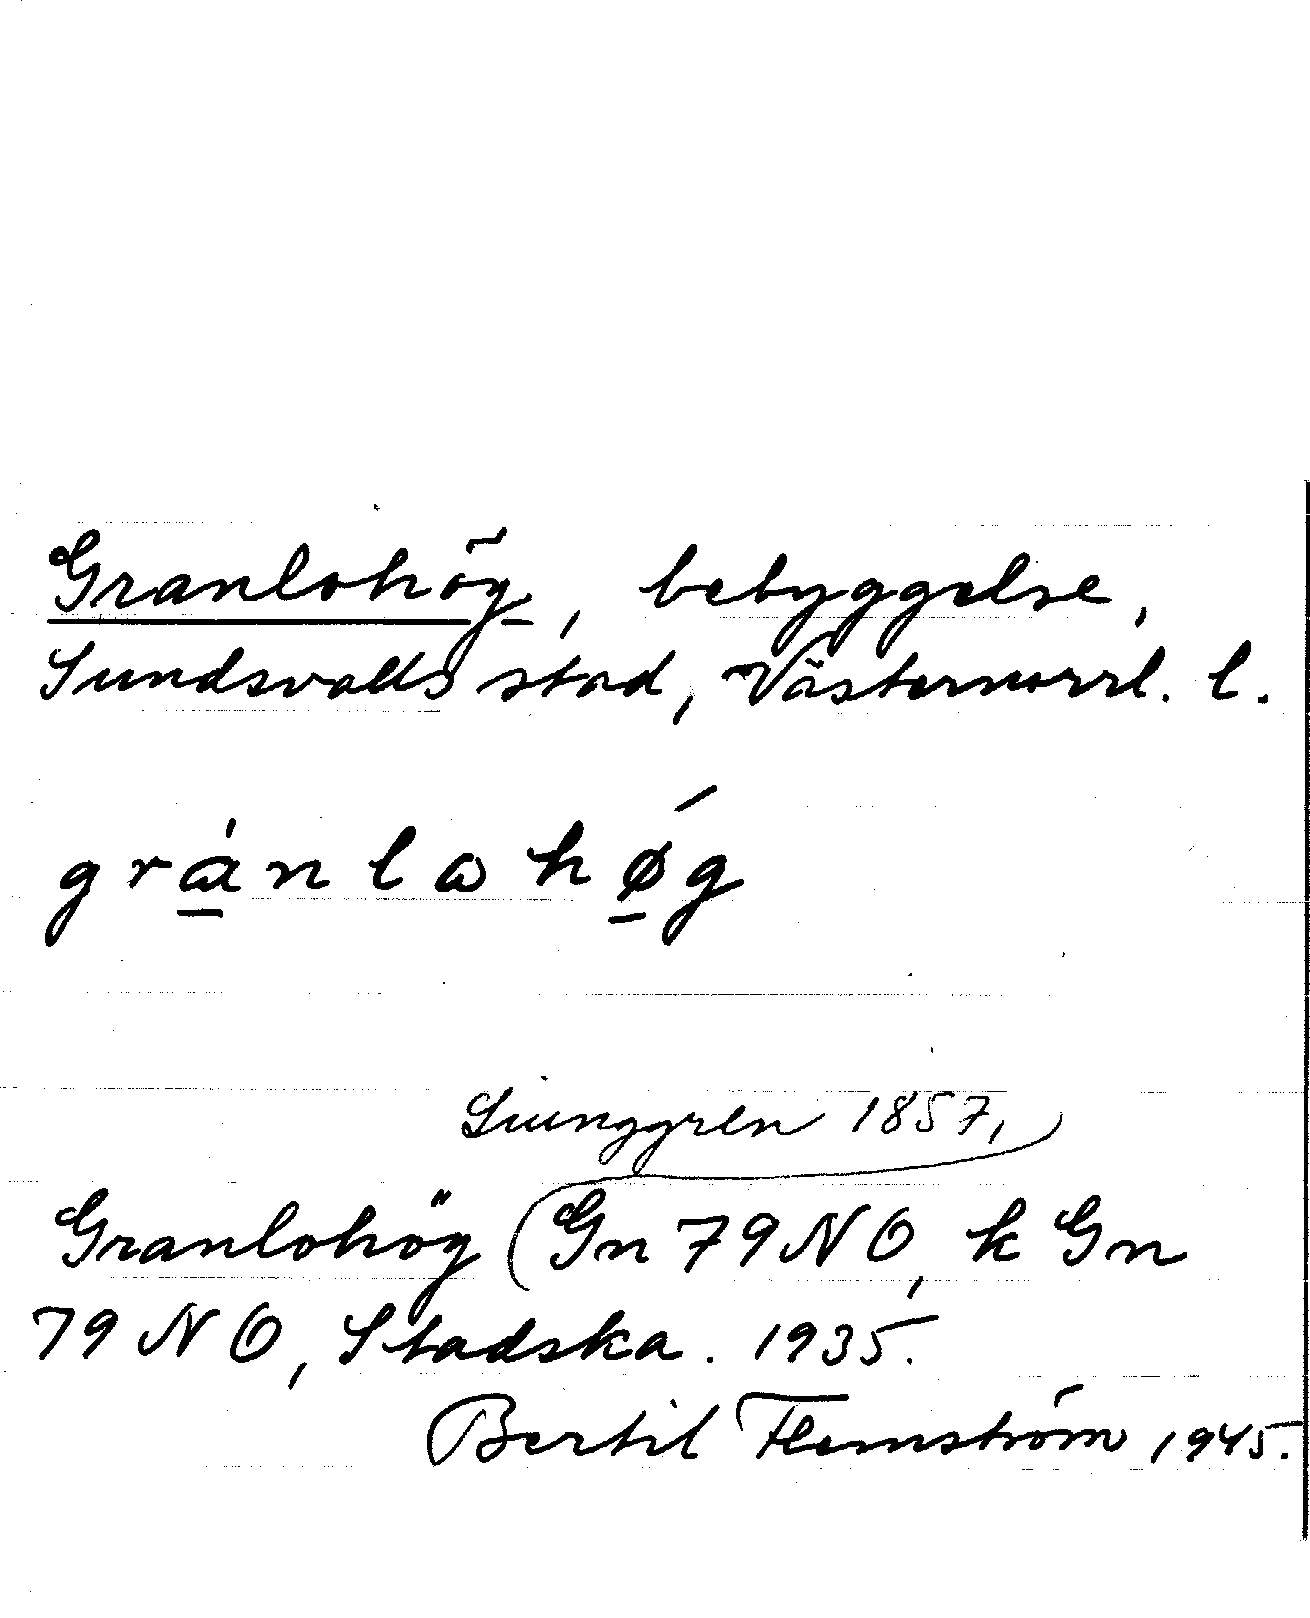 Granlohög, bebyggelse,
Sundsvalls stad, Västernorrl. l.
gránlohǿ̱g
Ljunggren 1857,
Granlohög (Gn 79 NO, k Gn
79 NO, Stadska. 1935.
Bertil Flemström 1945.